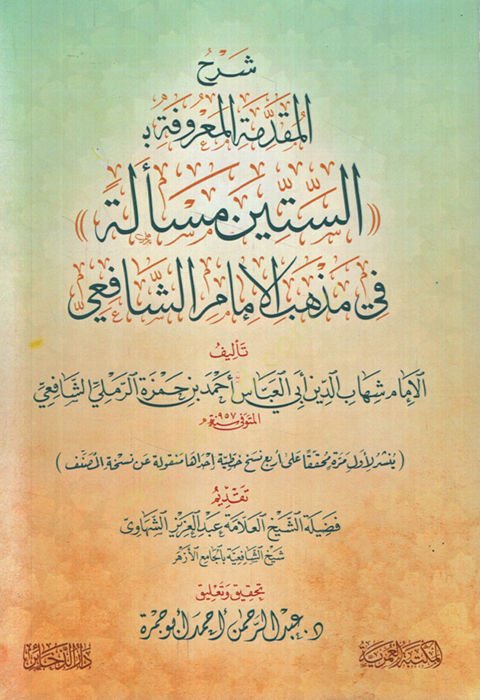 شرح
المقدمة المعروفة بـ
«الستين مسألة»
في مذهب الإمام الشافعي
تأليف
الإمام شهاب الدين أبي العباس أحمد بن حمزة الرملي الشافعي
المتوفى سنة ٩٥٧هـ
( ينشر لأول مرة محققا على أربع نسخ خطية إحداها منقولة عن نسخة المصنف )
تقديم
فضيلة الشيخ العلامة عبد العزيز الشهاوي
شيخ الشافعية بالجامع الأزهر
تحقيق وتعليق
د. عبد الرحمن أحمد أبو جمرة
المكتبة العمرية
دار الذخائر